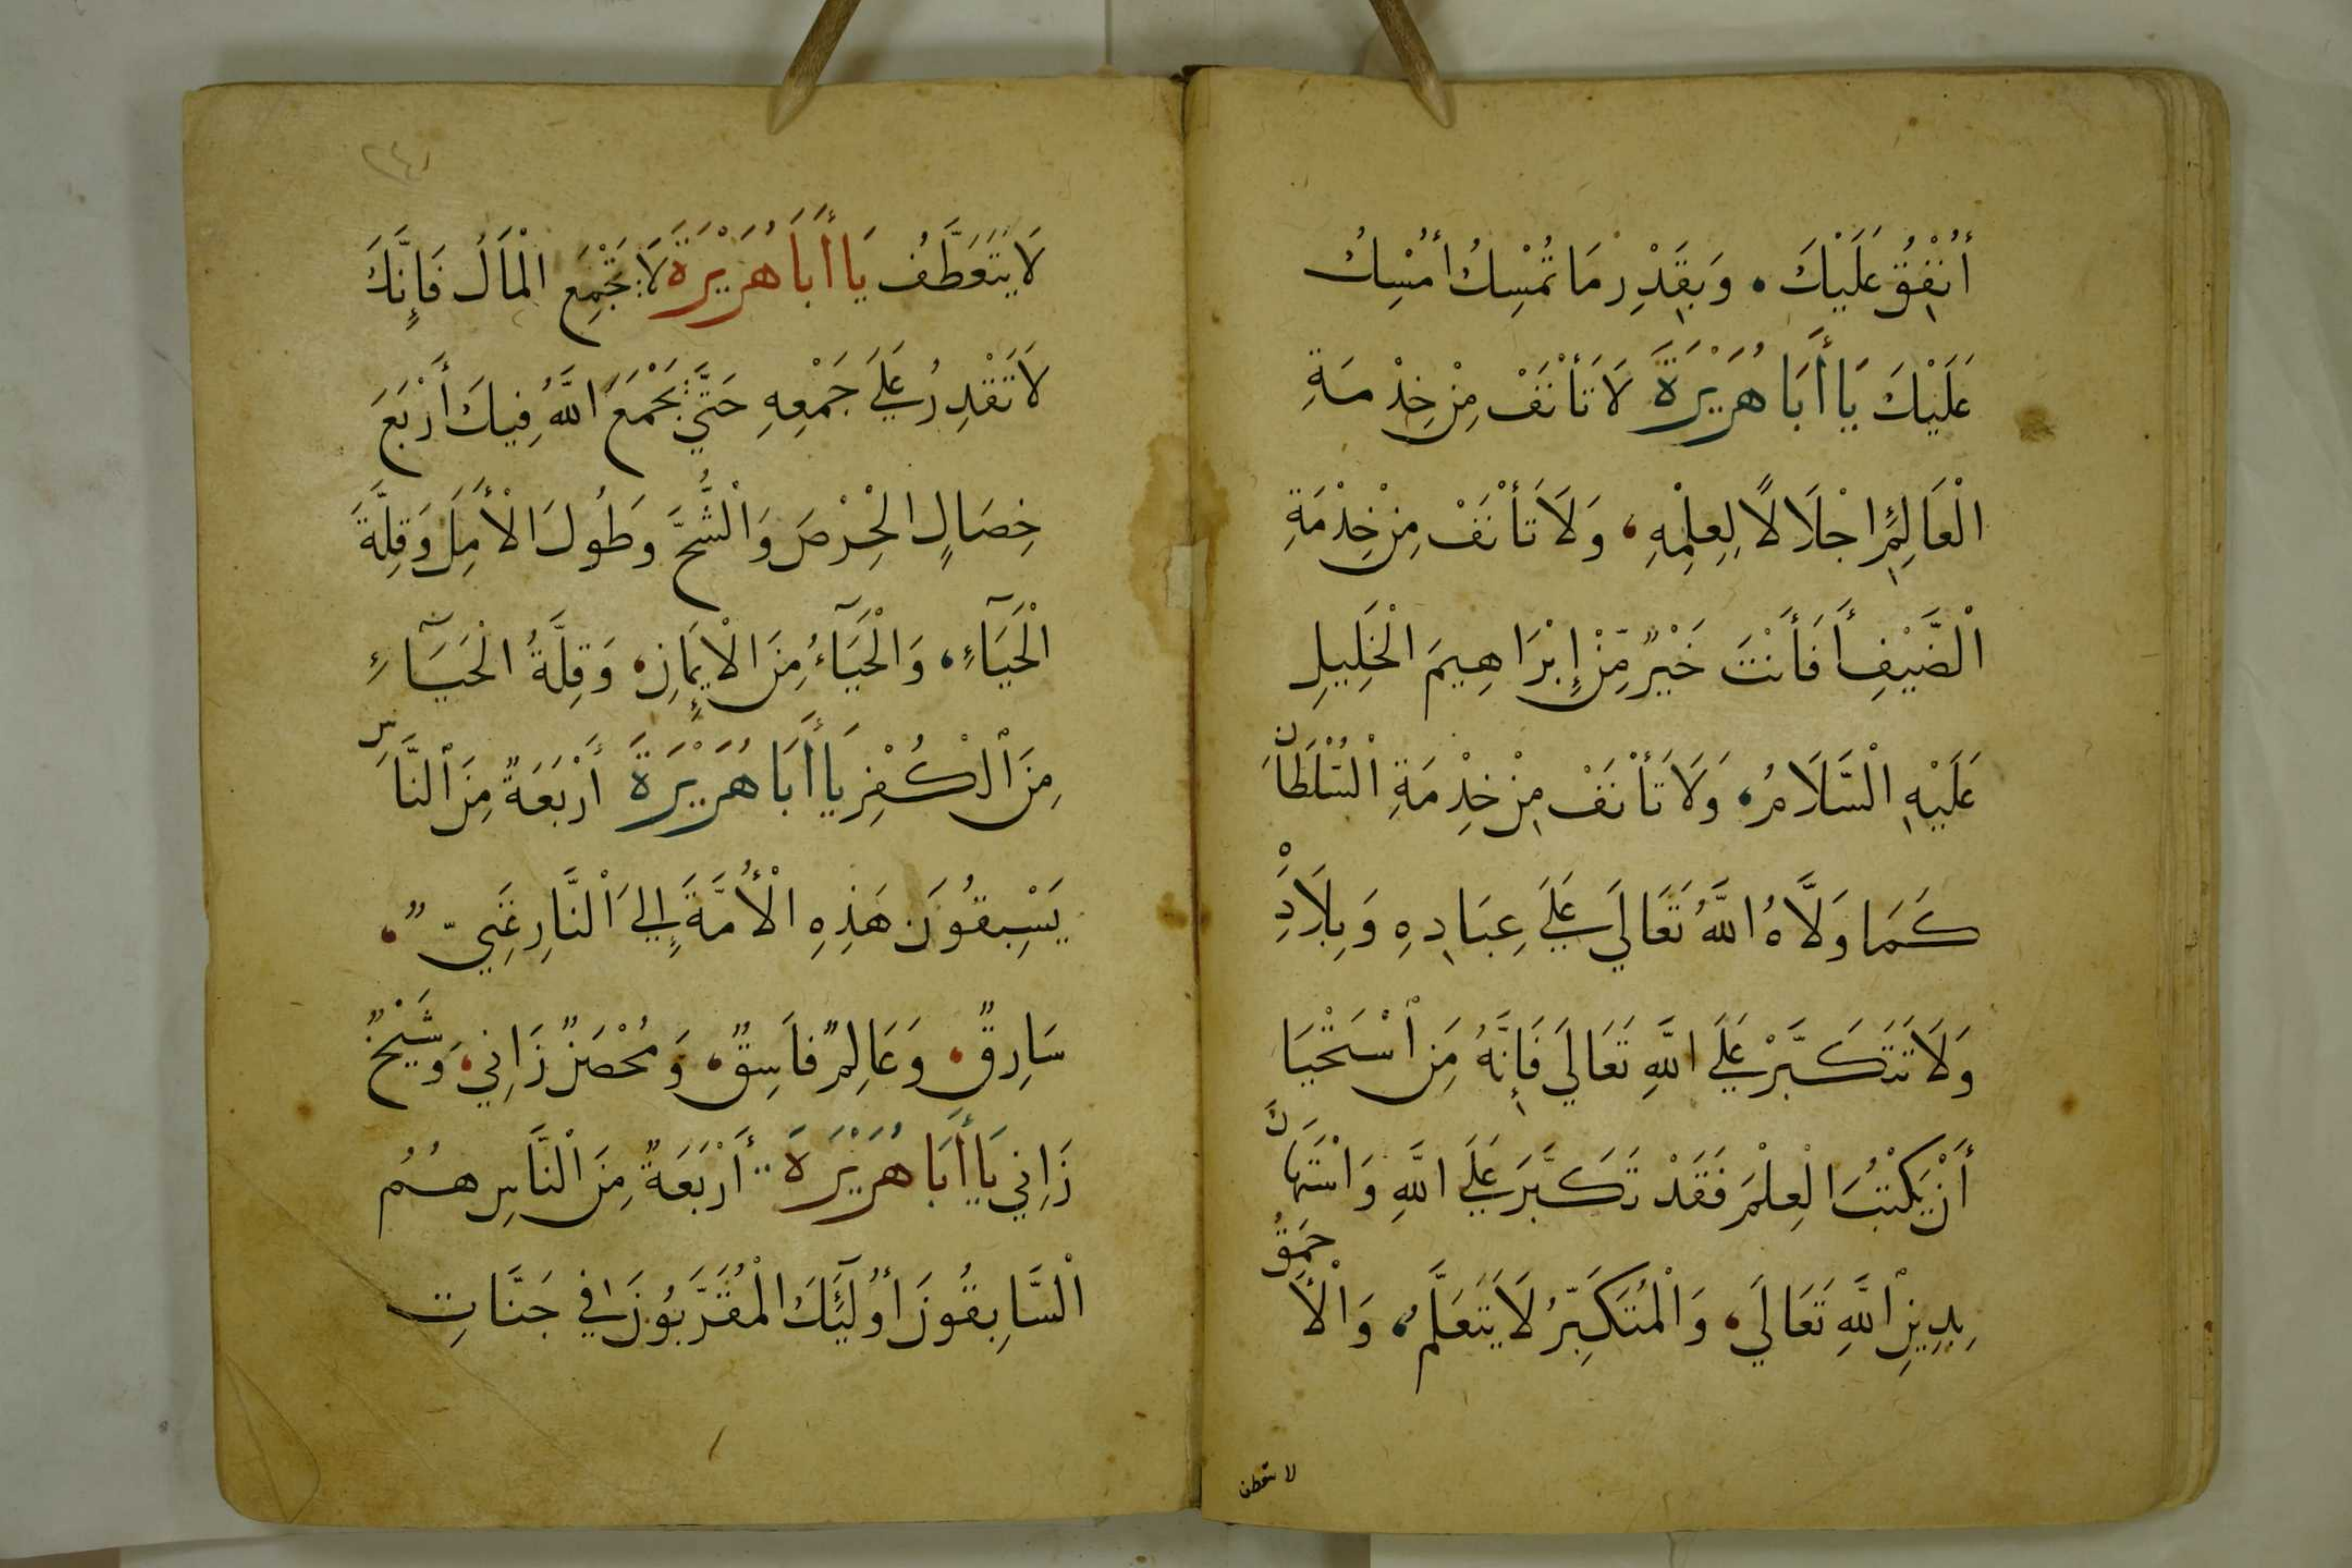 أُنْفِقُ عَلَيْكَ، وَبِقَدْرِ مَا تُمْسِكُ أُمْسِكُ
عَلَيْكَ يَا أَبَا هُرَيْرَةَ لَا تَأْنَفْ مِنْ خِدْمَةِ
الْعَالِمِ إِجْلَالًا لِعِلْمِهِ، وَلَا تَأْنَفْ مِنْ خِدْمَةِ
الْضَّيْفِ أَفَأَنْتَ خَيْرٌ مِّنْ إِبْرَاهِيمَ الْخَلِيلِ
عَلَيْهِ الْسَّلَامُ، وَلَا تَأْنَفْ مِنْ خِدْمَةِ الْسُّلْطَانِ
كَمَا وَلَّاهُ اللَّهُ تَعَالَي عَلَي عِبَادِهِ وَبِلَادِهِ
وَلَا تَتَكَبَّرْ عَلَي اللَّهِ تَعَالَي فَإِنَّهُ مَنِ اسْتَحْيَا
أَنْ يَكْتُبَ الْعِلْمَ فَقَدْ تَكَبَّرَ عَلَي اللَّهِ وَاسْتَهَانَ
بِدِينِ اللَّهِ تَعَالَي، وَالْمُتَكَبِّرُ لَا يَتَعَلَّمُ، وَالْأَحْمَقُ
لا يتعطف
٢٤١
لَا يَتَعَطَّفُ يَا أَبَا هُرَيْرَةَ لَا تَجْمَعِ الْمَالَ فَإِنَّكَ
لَا تَقْدِرُ عَلَي جَمْعِهِ حَتَّي يَجْمَعَ اللَّهُ فِيكَ أَرْبَعَ
خِصَالٍ الْحِرْصَ وَالْشُّحَّ وَطُولَ الْأَمَلِ وَقِلَّةَ
الْحَيَآءِ، وَالْحَيَآءُ مِنَ الْإِيمَانِ، وَقِلَّةُ الْحَيَآءِ
مِنَ الْكُفْرِ يَا أَبَا هُرَيْرَةَ أَرْبَعَةٌ مِنَ الْنَّاسِ
يَسْبِقُونَ هَذِهِ الْأُمَّةَ إِلَي الْنَّارِ غَنِيٌّ،
سَارِقٌ، وَعَالِمٌ فَاسِقٌ، وَمُحْصَنٌ زَانِي، وَشَيْخٌ
زَانِي يَا أَبَا هُرَيْرَةَ أَرْبَعَةٌ مِنَ الْنَّاسِ هُمُ
الْسَّابِقُونَ أُولَئِكَ الْمُقَرَّبُونَ فِي جَنَّاتِ